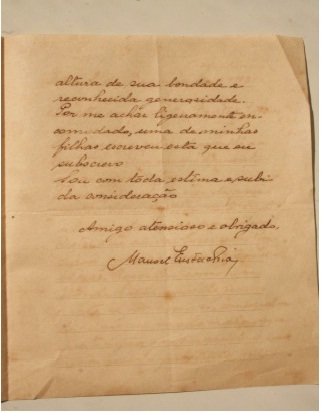 altura de sua bondade e
reconhecida generosidade.
Por me achar ligeiramente in-
commodado, uma de minhas
filhas escreveu esta que eu
subscrevo
Sou com toda estima e subi
da consideração
Amigo atencioso e obrigado,
Manoel